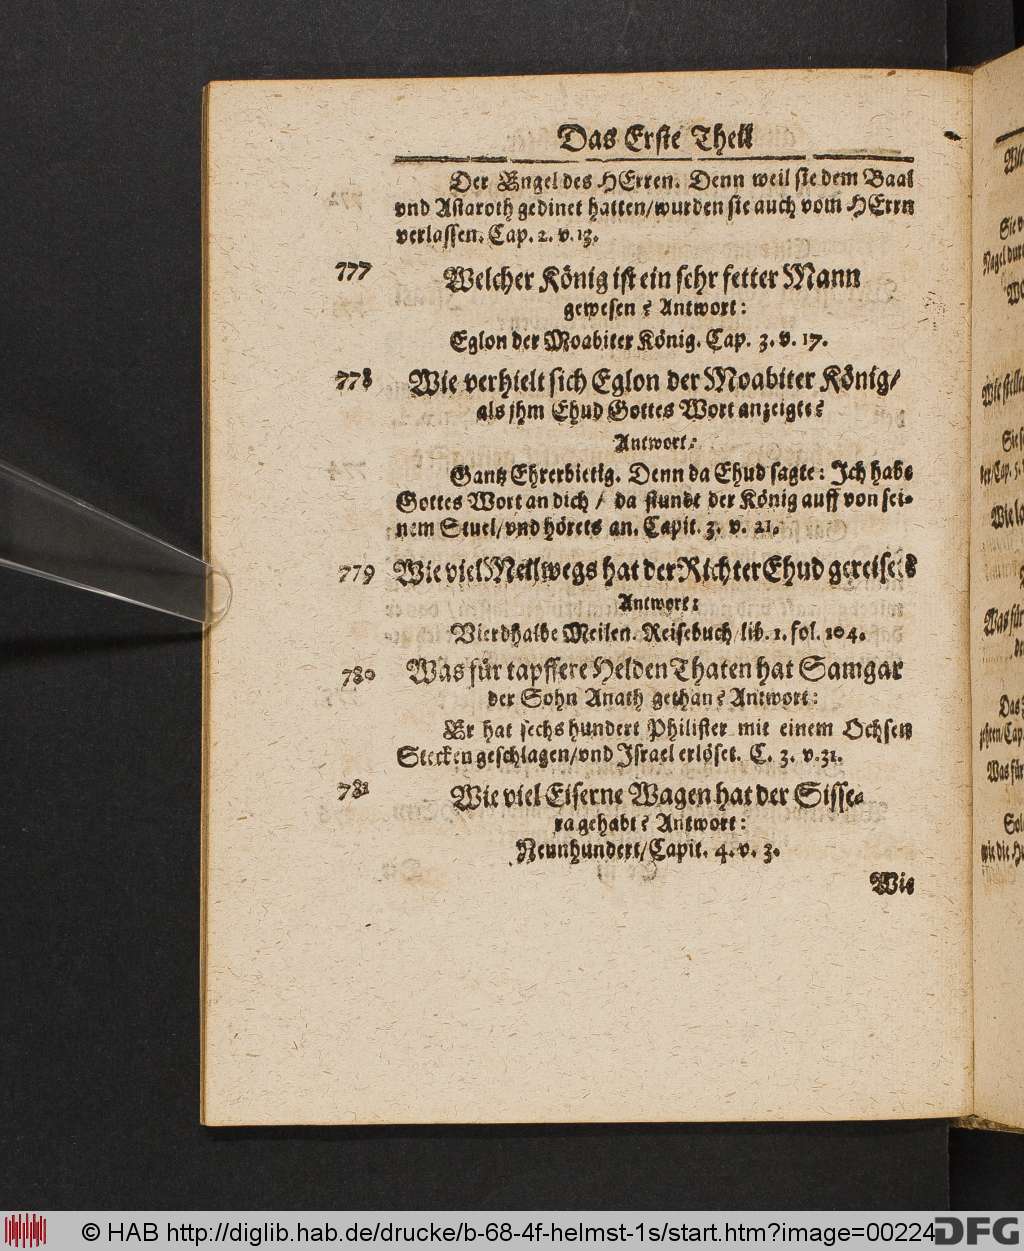 Das Erste Theil
Der Engel des HErren. Denn weil sie dem Baal
vnd Astaroth gedinet hatten/wurden sie auch vom HErrn
verlassen. Cap. 2. v. 13.
777 Welcher König ist ein sehr fetter Mann
gewesen? Antwort:
Eglon der Moabiter König. Cap. 3. v. 17.
778 Wie verhielt sich Eglon der Moabiter König/
als jhm Ehud Gottes Wort anzeigte?
Antwort:
Gantz Ehrerbietig. Denn da Ehud sagte: Ich habe
Gottes Wort an dich / da stundt der König auff von sei-
nem Stuel/vnd hörets an. Capit. 3. v. 21.
779 Wie viel Meilwegs hat der Richter Ehud gereiset?
Antwort:
Vierdhalbe Meilen. Reisebuch lib. 1. fol. 104.
780 Was für tapffere Helden Thaten hat Samgar
der Sohn Anath gethan? Antwort:
Er hat sechs hundert Philister mit einem Ochsen
Stecken geschlagen/vnd Israel erlöset. C. 3. v. 31.
781 Wie viel Eiserne Wagen hat der Sisse-
ra gehabt? Antwort:
Neunhundert/Capit. 4. v. 3.
Wie
© HAB http://diglib.hab.de/drucke/b-68-4f-helmst-1s/start.htm?image=00224
DFG